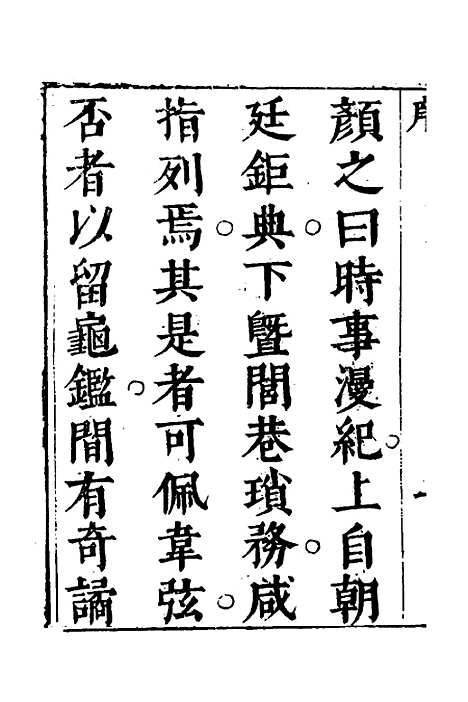 顏之曰時事漫紀上自朝
廷鉅典下曁閭巷瑣務咸
指列焉其是者可佩韋弦
否者以留龜鑑間有奇譎